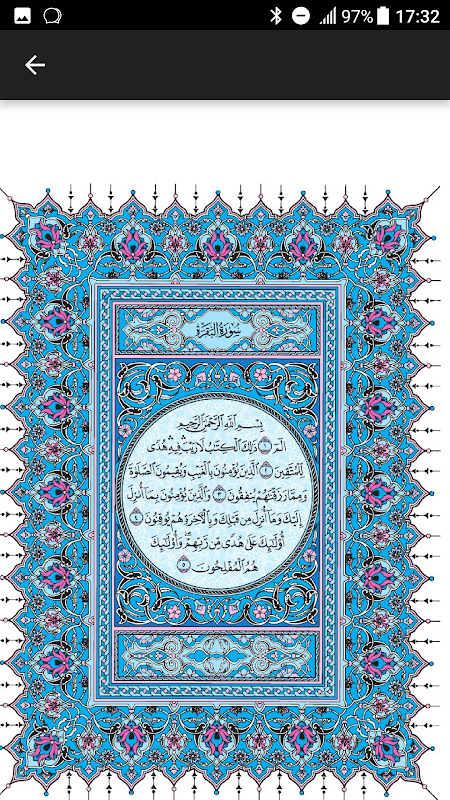 97% 17:32
سُورَةُ البَقَرَةِ
بِسْمِ اللَّهِ الرَّحْمَٰنِ الرَّحِيمِ
الٓمٓ ١ ذَٰلِكَ الْكِتَٰبُ لَا رَيْبَ ۛ فِيهِ ۛ هُدًى
لِّلْمُتَّقِينَ ٢ الَّذِينَ يُؤْمِنُونَ بِالْغَيْبِ وَيُقِيمُونَ الصَّلَوٰةَ
وَمِمَّا رَزَقْنَٰهُمْ يُنفِقُونَ ٣ وَالَّذِينَ يُؤْمِنُونَ بِمَا أُنزِلَ
إِلَيْكَ وَمَا أُنزِلَ مِن قَبْلِكَ وَبِالْءَاخِرَةِ هُمْ يُوقِنُونَ ٤
أُو۟لَٰٓئِكَ عَلَىٰ هُدًى مِّن رَّبِّهِمْ ۖ وَأُو۟لَٰٓئِكَ
هُمُ الْمُفْلِحُونَ ٥